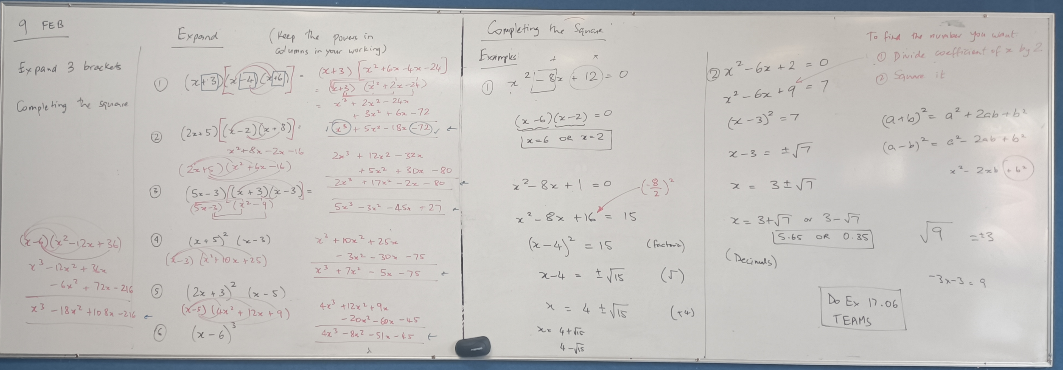 9 FEB
Expand 3 brackets
Completing the square
(x-6)(x²-12x+36)
x³-12x²+36x
-6x²+72x-216
x³-18x²+108x-216
Expand
(Keep the powers in columns in your working)
① (x+3)[(x-4)(x+6)] =
(x+3)[x²+6x-4x-24]
= (x+3)(x²+2x-24)
= x³+2x²-24x
+3x²+6x-72
x³+5x²-18x-72
② (2x+5)[(x-2)(x+8)] =
x²+8x-2x-16
(2x+5)(x²+6x-16)
2x³+12x²-32x
+5x²+30x-80
2x³+17x²-2x-80
③ (5x-3)(x+3)(x-3) =
(5x-3)(x²-9)
5x³-3x²-45x+27
④ (x+5)²(x-3)
(x-3)(x²+10x+25)
x³+10x²+25x
-3x²-30x-75
x³+7x²-5x-75
⑤ (2x+3)²(x-5)
(x-5)(4x²+12x+9)
4x³+12x²+9x
-20x²-60x-45
4x³-8x²-51x-45
⑥ (x-6)³
Completing the Square
Examples
+ x
① x²-8x+12=0
(x-6)(x-2)=0
x=6 OR x=2
x²-8x+1=0
(-8/2)²
x²-8x+16 = 15
(x-4)² = 15 (factorise)
x-4 = ±√15 (√)
x = 4±√15 (+4)
x = 4+√15
4-√15
② x²-6x+2=0
x²-6x+9=7
(x-3)²=7
x-3 = ±√7
x = 3±√7
x = 3+√7 or 3-√7
5.65 OR 0.35
(Decimals)
To find the number you want
① Divide coefficient of x by 2
② Square it
(a+b)² = a²+2ab+b²
(a-b)² = a²-2ab+b²
x²-2xb+b²
√9 = ±3
-3x-3=9
Do Ex 17.06
TEAMS